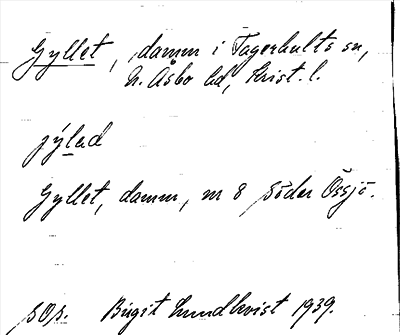 Gyllet, damm i Tågerhults sn,
N. Åsbo hd, Krist. l.
jýləd
Gyllet, damm, m 8 söder Össjö.
sOs. Birgit Lundkvist 1939.